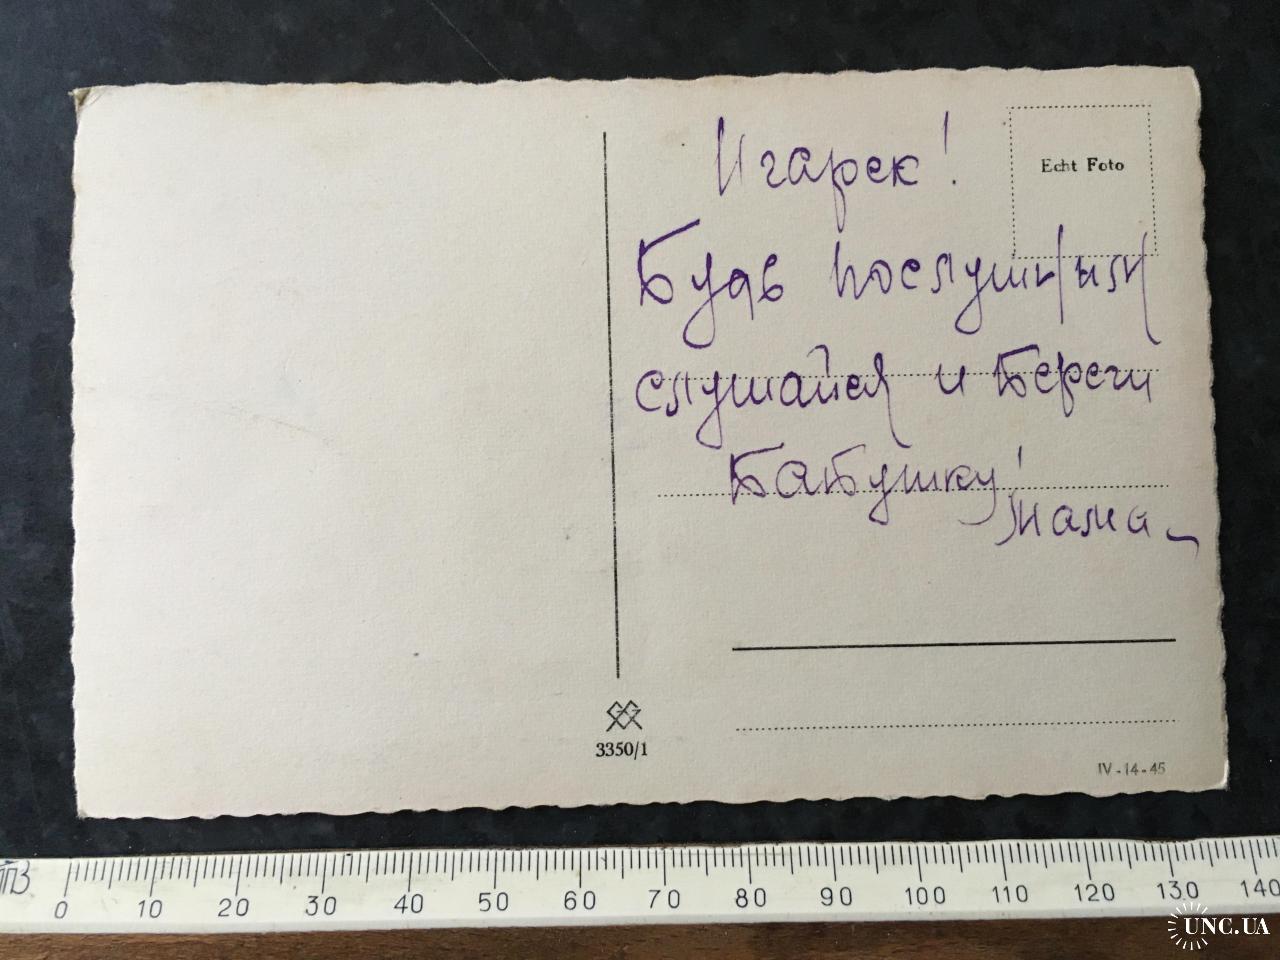 Игарек!
Echt Foto
Будь послушным
слушайся и береги
Бабушку!
мама
3350/1
IV-14-45
ТПЗ
0 10 20 30 40 50 60 70 80 90 100 110 120 130 140
UNC.UA